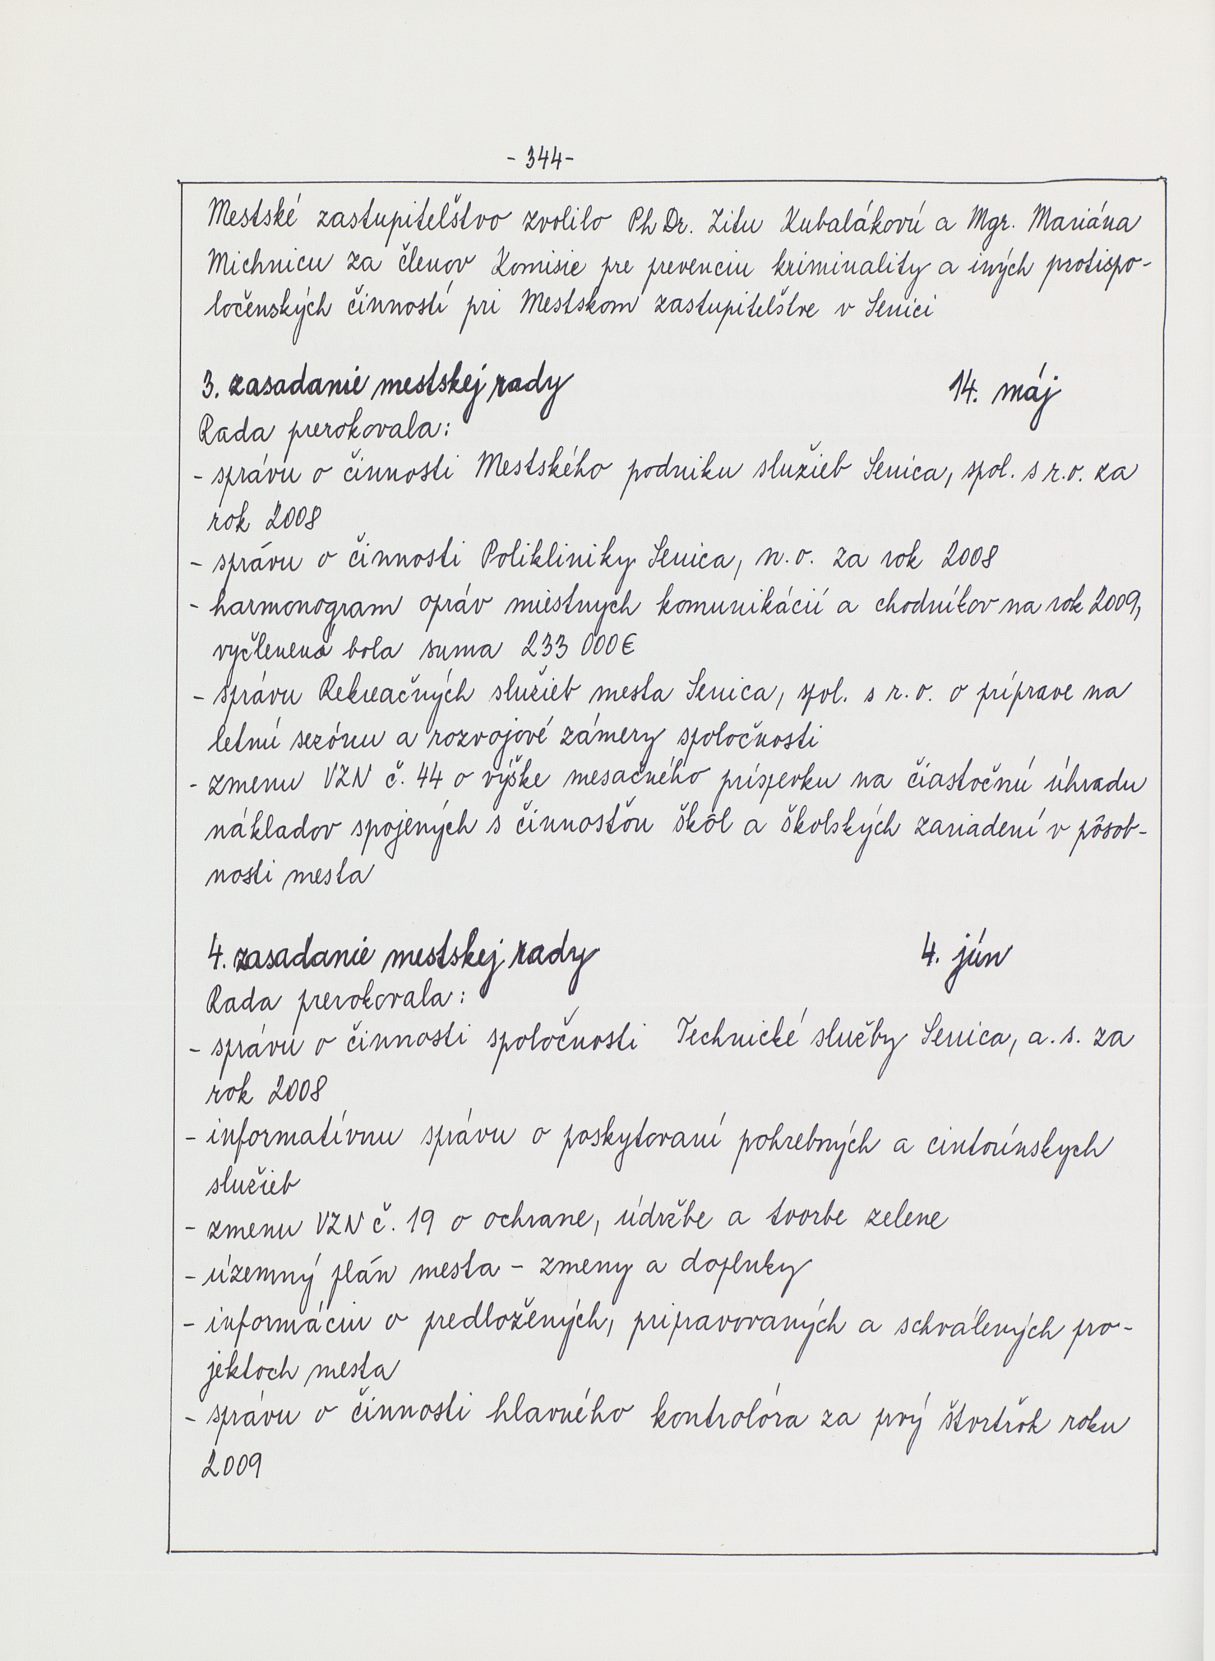 - 344 -
Mestské zastupiteľstvo zvolilo PhDr. Zitu Kubalákovú a Mgr. Mariána
Michnicu za členov Komisie pre prevenciu kriminality a iných protispo-
ločenských činností pri Mestskom zastupiteľstve v Senici
3. zasadanie mestskej rady 14. máj
Rada prerokovala:
- správu o činnosti Mestského podniku služieb Senica, spol. s r.o. za
rok 2008
- správu o činnosti Polikliniky Senica, n.o. za rok 2008
- harmonogram opráv miestnych komunikácií a chodníkov na rok 2009,
vyčlenená bola suma 233 000 €
- správu Rekreačných služieb mesta Senica, spol. s r.o. o príprave na
letnú sezónu a rozvojové zámery spoločnosti
- zmenu VZN č. 44 o výške mesačného príspevku na čiastočnú úhradu
nákladov spojených s činnosťou škôl a školských zariadení v pôsob-
nosti mesta
4. zasadanie mestskej rady 4. jún
Rada prerokovala:
- správu o činnosti spoločnosti Technické služby Senica, a.s. za
rok 2008
- informatívnu správu o poskytovaní pohrebných a cintorínskych
služieb
- zmenu VZN č. 19 o ochrane, údržbe a tvorbe zelene
- územný plán mesta - zmeny a doplnky
- informáciu o predložených, pripravovaných a schválených pro-
jektoch mesta
- správu o činnosti hlavného kontrolóra za prvý štvrťrok roku
2009